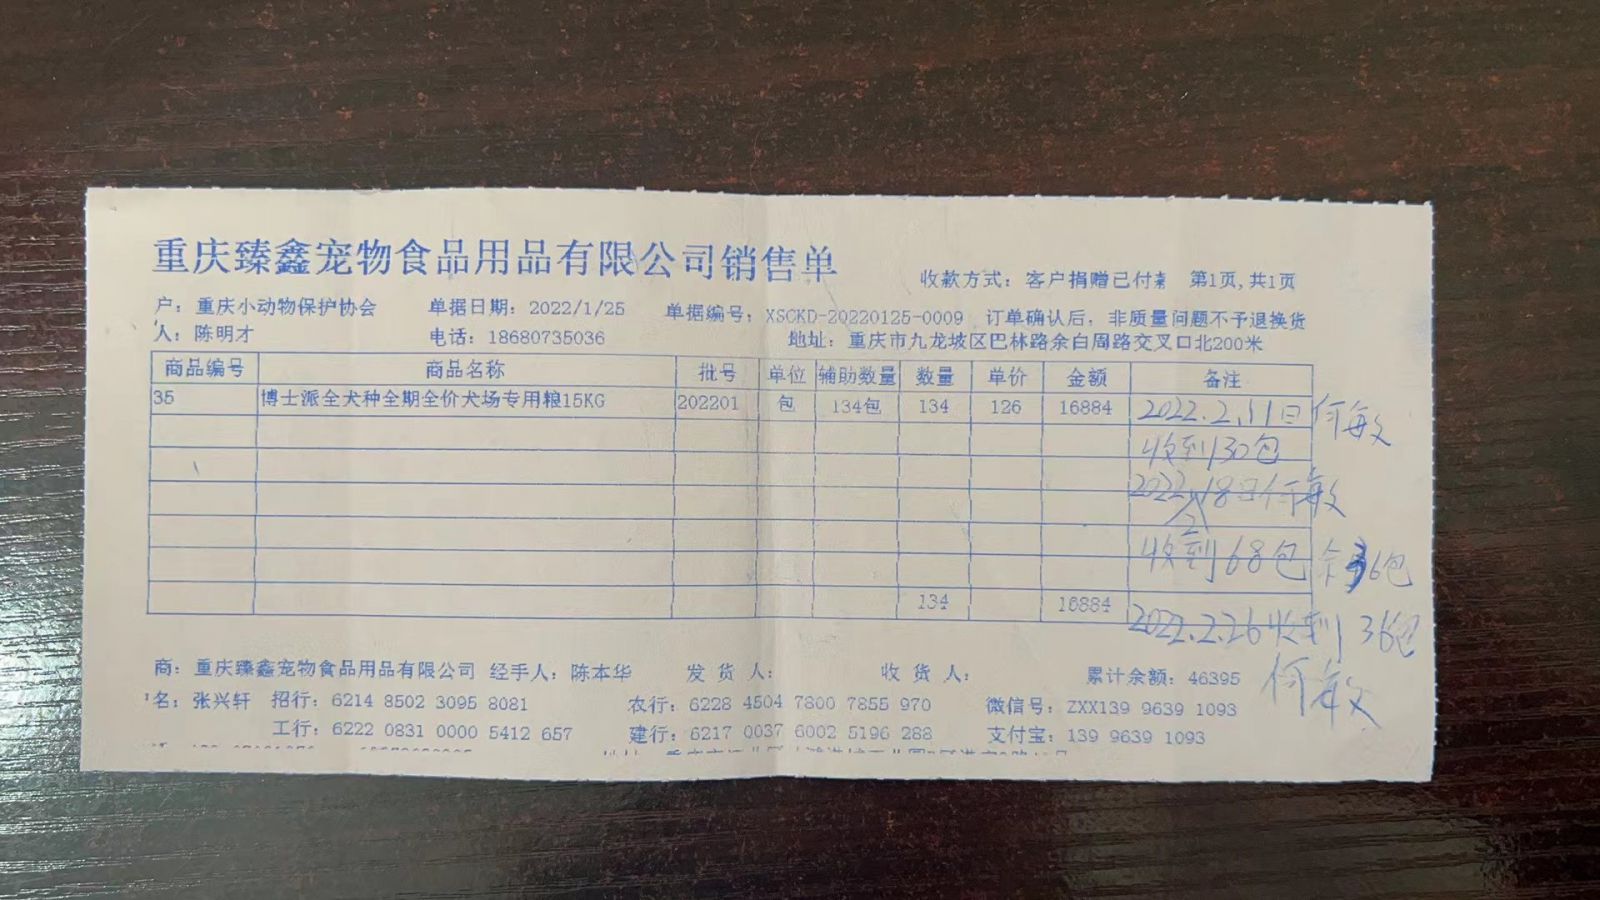 重庆臻鑫宠物食品用品有限公司销售单
收款方式: 客户捐赠已付 第1页,共1页
户: 重庆小动物保护协会 单据日期: 2022/1/25 单据编号: XSCKD-20220125-0009 订单确认后, 非质量问题不予退换货
人: 陈明才 电话: 18680735036 地址: 重庆市九龙坡区巴林路余白周路交叉口北200米
商品编号 商品名称 批号 单位 辅助数量 数量 单价 金额 备注
35 博士派全犬种全期全价犬场专用粮15KG 202201 包 134包 134 126 16884 2022.2.11日 何敏
收到130包
2022.2.18日何敏
收到68包 余36包
134 16884
2022.2.26收到36包
何敏
商: 重庆臻鑫宠物食品用品有限公司 经手人: 陈本华 发货人: 收货人: 累计余额: 46395
名: 张兴轩 招行: 6214 8502 3095 8081 农行: 6228 4504 7800 7855 970 微信号: ZXX139 9639 1093
工行: 6222 0831 0000 5412 657 建行: 6217 0037 6002 5196 288 支付宝: 139 9639 1093